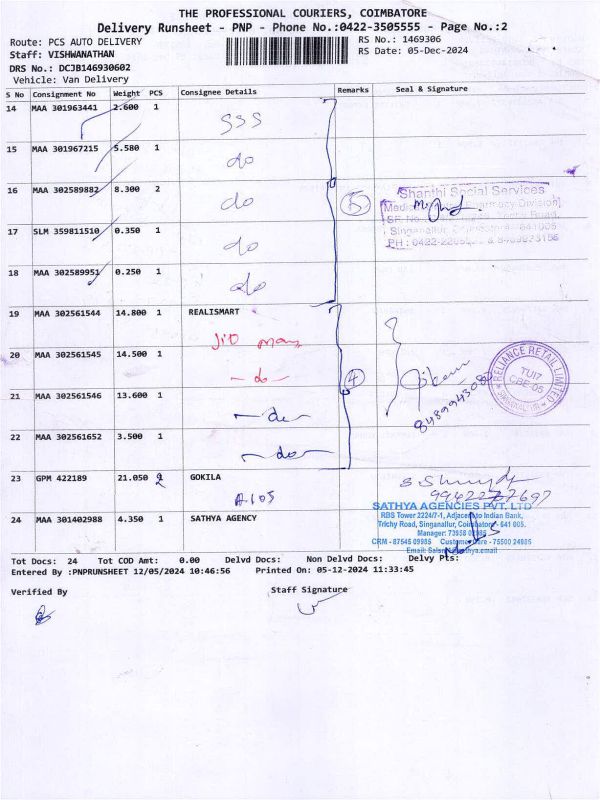 THE PROFESSIONAL COURIERS, COIMBATORE
Delivery Runsheet - PNP - Phone No.:0422-3505555 - Page No.:2
Route: PCS AUTO DELIVERY
RS No.: 1469306
Staff: VISHWANATHAN
RS Date: 05-Dec-2024
DRS No.: DCJB146930602
Vehicle: Van Delivery
S No Consignment No Weight PCS Consignee Details Remarks Seal & Signature
14 MAA 301963441 2.600 1 SSS
15 MAA 301967215 5.580 1 do
16 MAA 302589882 8.300 2 do
5
Shanthi Social Services
17 SLM 359811510 0.350 1 do
18 MAA 302589951 0.250 1 do
19 MAA 302561544 14.800 1 REALISMART
JIO
20 MAA 302561545 14.500 1 -do-
4
RELIANCE RETAIL LIMITED
TUI7
CBE-05
SINGANALLUR
21 MAA 302561546 13.600 1 -do-
22 MAA 302561652 3.500 1 -do-
23 GPM 422189 21.050 2 GOKILA
A.105
24 MAA 301402988 4.350 1 SATHYA AGENCY
SATHYA AGENCIES PVT. LTD
RBS Tower 2224/7-1, Adjacent to Indian Bank,
Trichy Road, Singanallur, Coimbatore - 641 005.
Manager: 73958
CRM - 87545 09985 Customer Care - 75500 24985
Tot Docs: 24 Tot COD Amt: 0.00 Delvd Docs: Non Delvd Docs: Delvy Pts:
Entered By :PNPRUNSHEET 12/05/2024 10:46:56 Printed On: 05-12-2024 11:33:45
Verified By
Staff Signature